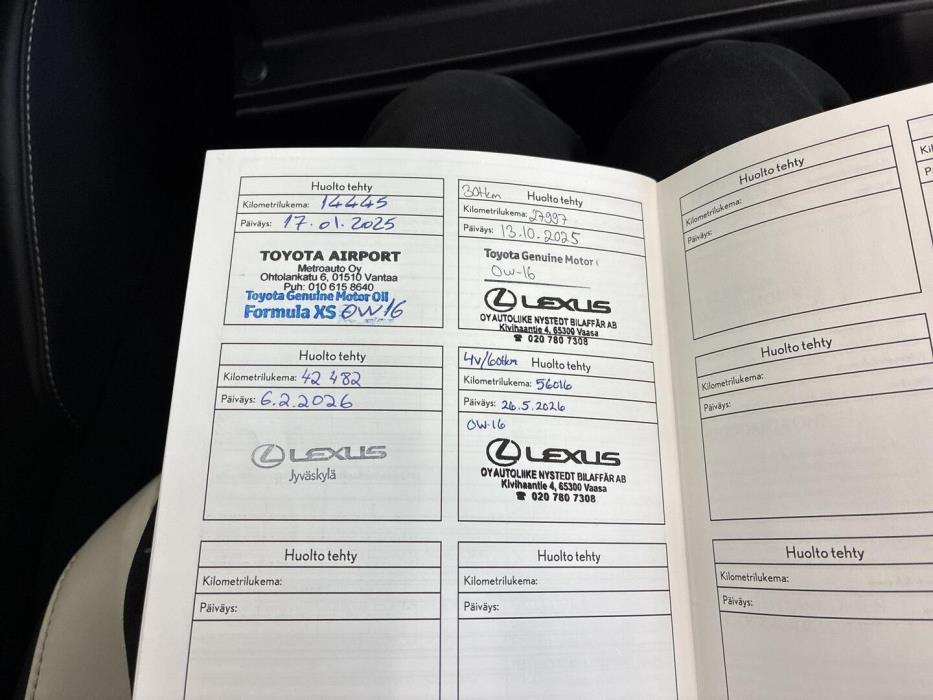 Huolto tehty
Kilometrilukema: 14445
Päiväys: 17.01.2025
TOYOTA AIRPORT
Metroauto Oy
Ohtolankatu 6, 01510 Vantaa
Puh: 010 615 8640
Toyota Genuine Motor Oil
Formula XS 0W16
30tkm Huolto tehty
Kilometrilukema: 27997
Päiväys: 13.10.2025
Toyota Genuine Motor
0W-16
LEXUS
OY AUTOLIIKE NYSTEDT BILAFFÄR AB
Kivihaantie 4, 65300 Vaasa
☎ 020 780 7308
Huolto tehty
Kilometrilukema: 42 482
Päiväys: 6.2.2026
LEXUS
Jyväskylä
4v/60tkm Huolto tehty
Kilometrilukema: 56016
Päiväys: 26.5.2026
0W-16
LEXUS
OY AUTOLIIKE NYSTEDT BILAFFÄR AB
Kivihaantie 4, 65300 Vaasa
☎ 020 780 7308
Huolto tehty
Kilometrilukema:
Päiväys:
Huolto tehty
Kilometrilukema:
Päiväys:
Huolto tehty
Kilometrilukema:
Päiväys:
Huolto tehty
Kilometrilukema:
Päiväys:
Huolto tehty
Kilometrilukema:
Päiväys: